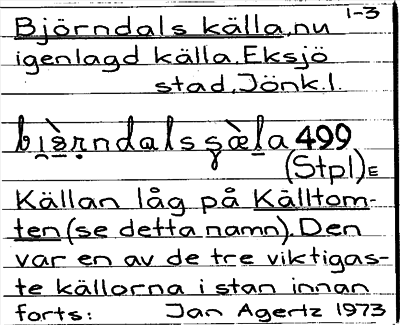 1-3
Björndals källa, nu
igenlagd källa. Eksjö
stad, Jönk.l.
499
(Stpl)E
Källan låg på Källtom-
ten (se detta namn). Den
var en av de tre viktigas-
te källorna i stan innan
forts: Jan Agertz 1973